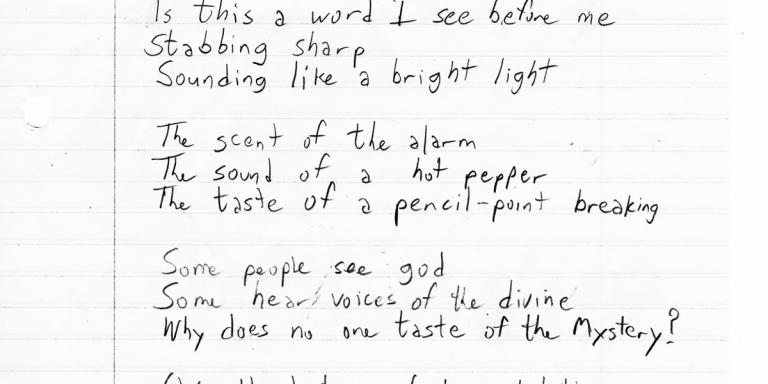 Is this a word I see before me
Stabbing sharp
Sounding like a bright light
The scent of the alarm
The sound of a hot pepper
The taste of a pencil-point breaking
Some people see god
Some hear voices of the divine
Why does no one taste of the Mystery?